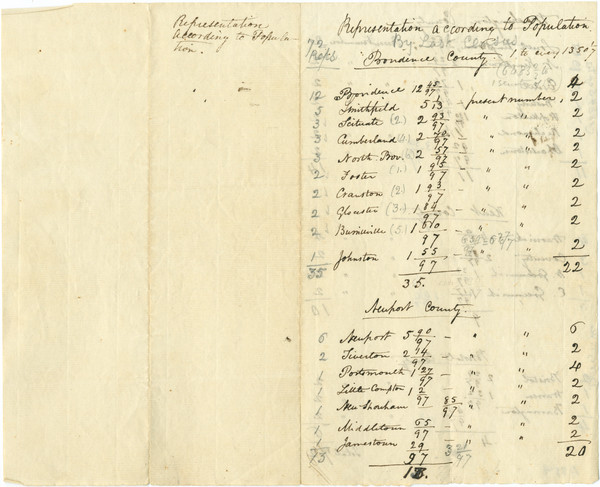 Representation
according to Popula-
tion.
Representation according to Population.
By Last Census
72 Reps
Providence County. 1 to every 1350
12 Providence 12 48/97 4
5 Smithfield 5 13/97 present number, 2
3 Scituate (2.) 2 93/97 " " 2
3 Cumberland 2 70/97 " " 2
3 North Prov. 2 57/97 " " 2
2 Foster (1.) 1 95/97 " " 2
2 Cranston (2.) 1 93/97 " " 2
2 Glocester (3.) 1 84/97 " " 2
2 Burrillville (5.) 1 60/97 " " 2
1 Johnston 1 55/97 " " 2
35 35. 22
Newport County.
6 Newport 5 90/97 " " 6
2 Tiverton 2 14/97 " " 2
1 Portsmouth 1 27/97 " " 4
1 Little Compton 1 2/97 " " 2
1 New Shoreham 85/97 " " 2
1 Middletown 65/97 " " 2
1 Jamestown 29/97 " " 2
20